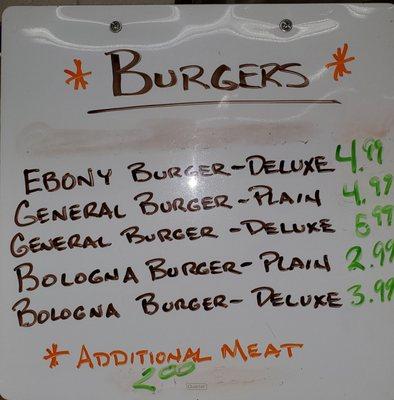 * BURGERS *
EBONY BURGER-DELUXE 4.99
GENERAL BURGER-PLAIN 4.99
GENERAL BURGER-DELUXE 5.99
BOLOGNA BURGER-PLAIN 2.99
BOLOGNA BURGER-DELUXE 3.99
* ADDITIONAL MEAT
2.00
Quartet